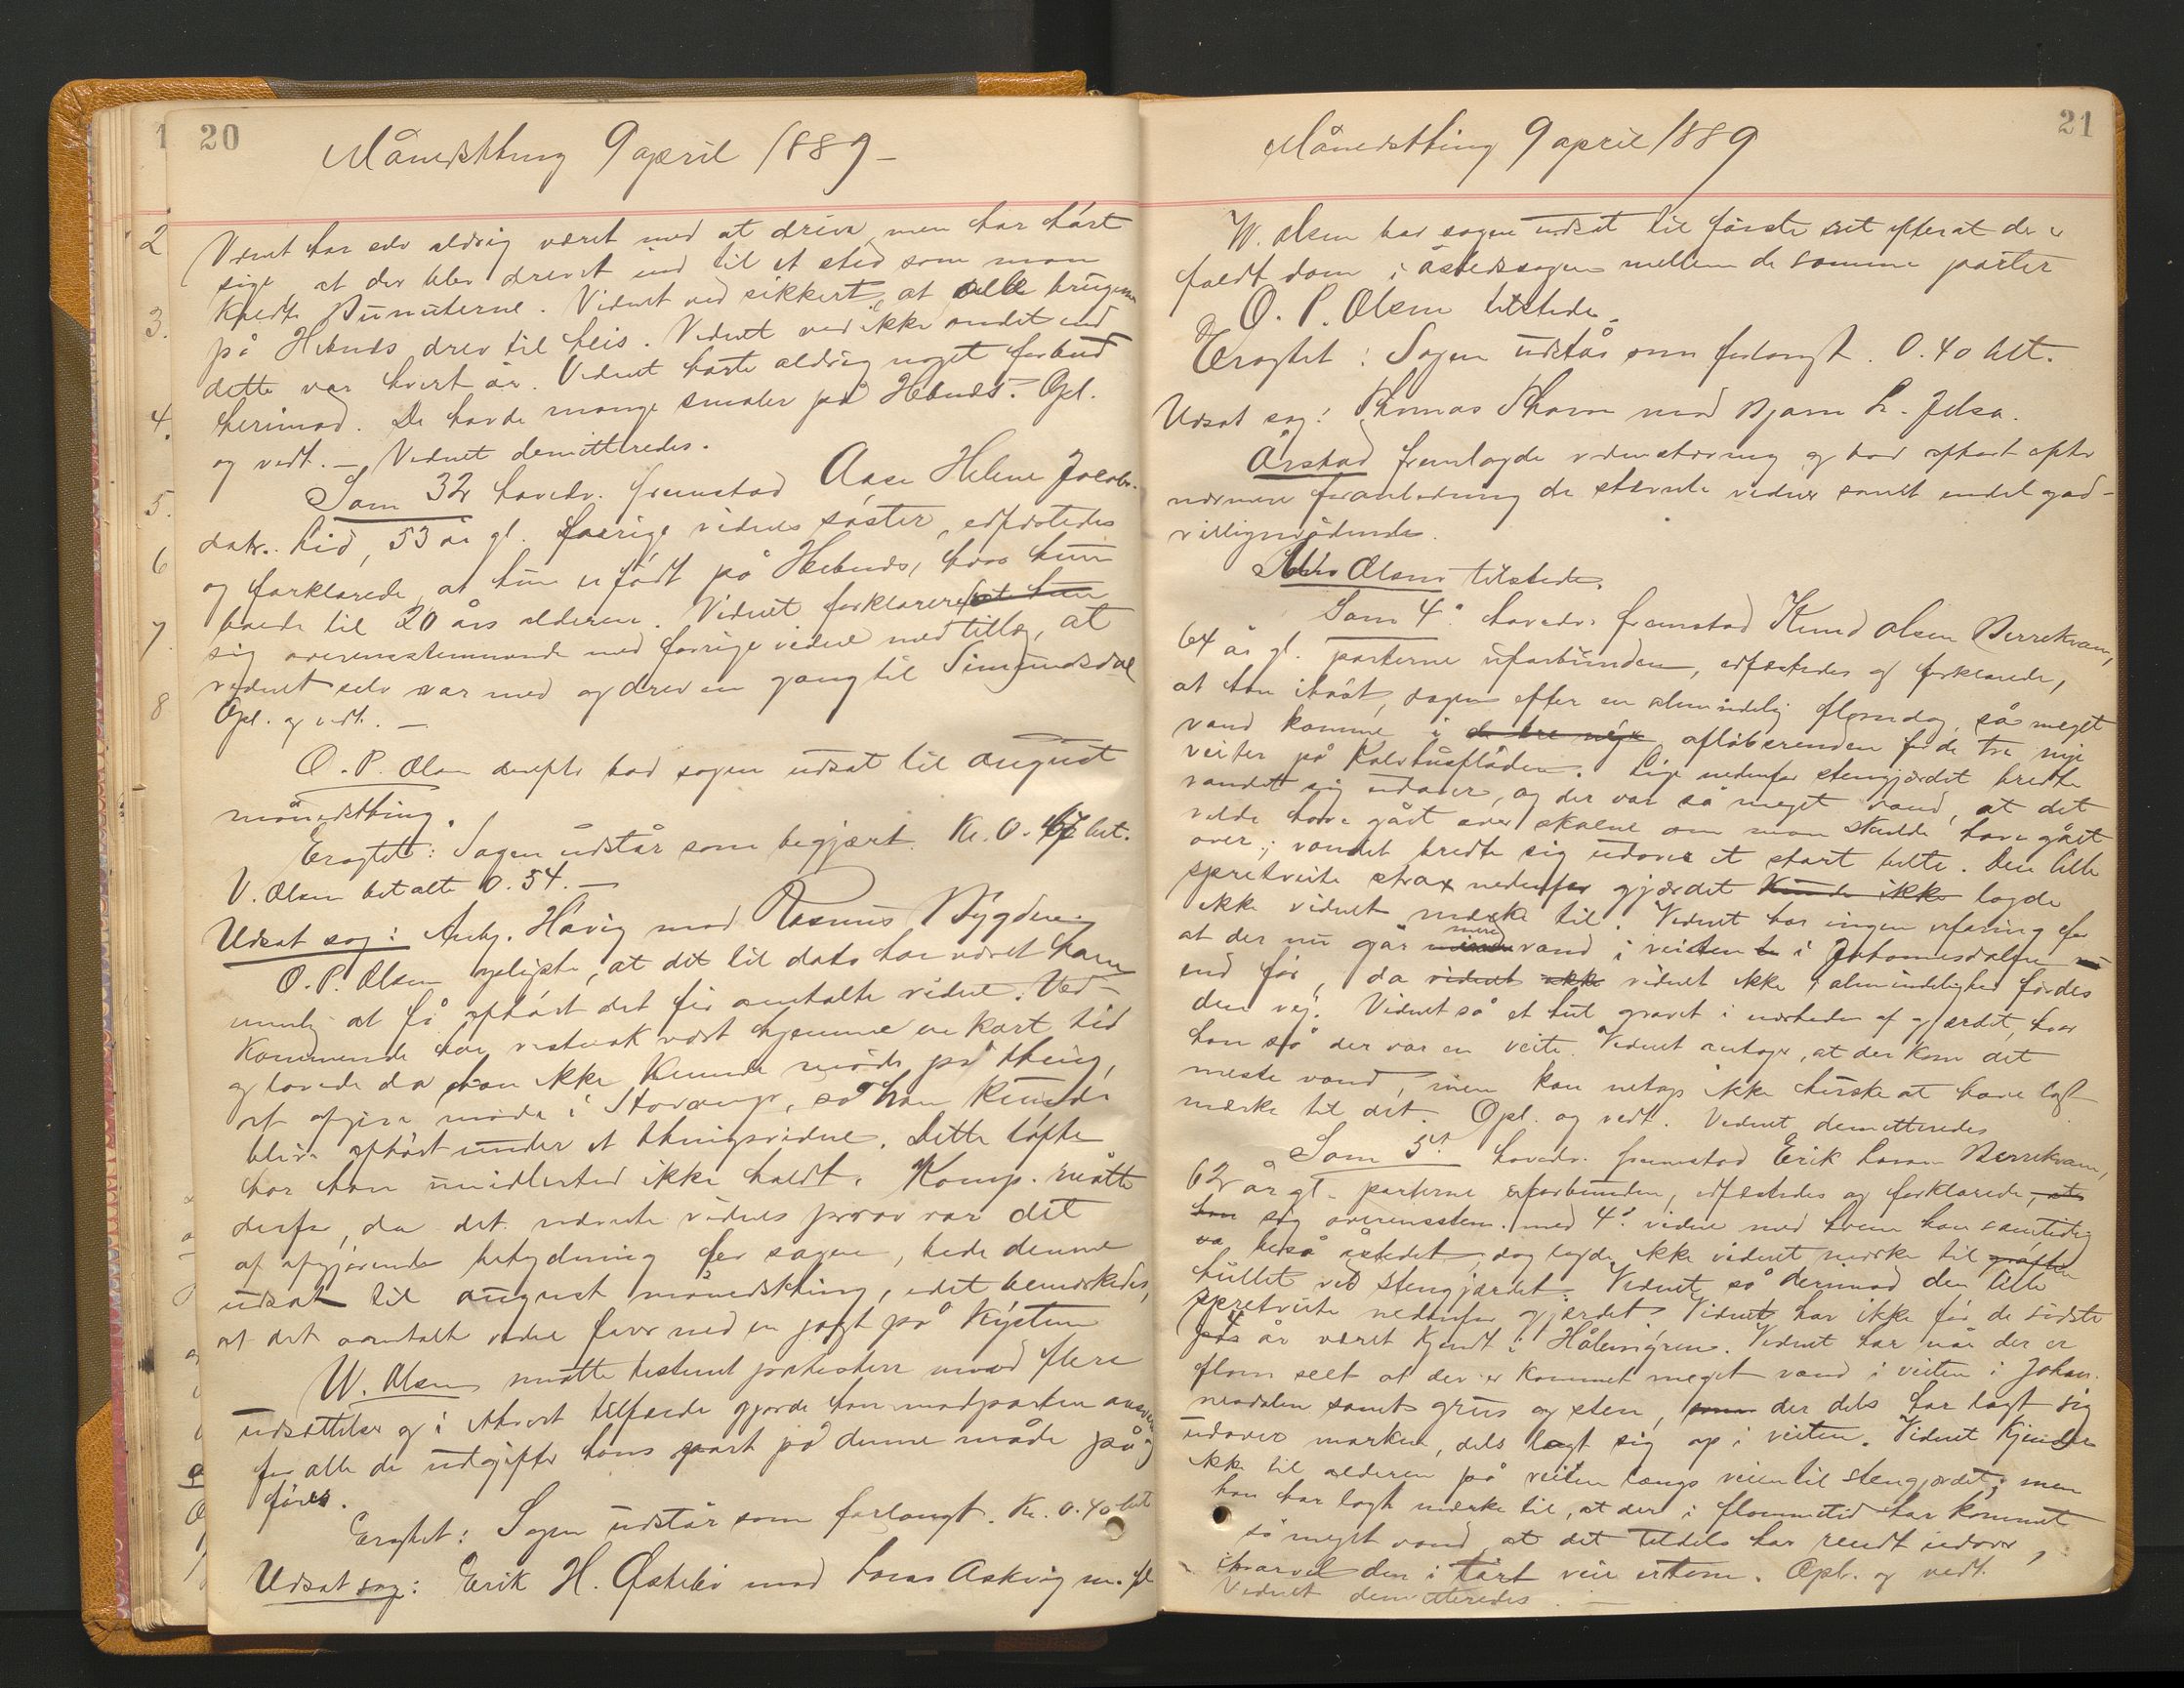 20
Månedsthing 9 april 1889 –
Vidnet har selv aldrig været med at drive, men har hørt
sige at der blev drevet ind til et sted som man
kaldte . Vidnet ved sikkert, at alle brugerne
på Hebnes drev til heis. Vidnet ved ikke andet end
dette var hvert år. Vidnet hørte aldrig noget forbud
herimod. De havde mange smaler på Hebnes. Opl.
og vedt. – Vidnet demitteredes.
Som 32 hovedv. fremstod Aase Helene Jacobs-
datr. Lid, 53 år gl. forrige vidnes søster, edfæstedes
og forklarede, at hun er født på Hebnes, hvor hun
boede til 20 års alderen. Vidnet forklarer at hun
sig overensstemmende med forrige vidne med tillæg, at
vidnet selv var med og drev en gang til Simundsdal
Opl. og vedt. –
O. P. Olsen derefter bad sagen udsat til august
månedsthing.
Eragtet: Sagen udstår som begjært. Kr. 0. 47 bet.
V. Olsen betalte 0.54. –
Udsat sag: Anbj. Håvig mod Rasmus Nygden
O. P. Olsen oplyste, at det til dato har været ham
umulig at få afhørt det før omtalte vidne. Ved-
kommende har vistnok vært hjemme en kort tid
og lovede da han ikke kunde møde på thing,
at afgive møde i Stavanger, så han kunde
blive afhørt under et thingsvidne. Dette løfte
har han imidlertid ikke holdt. Komp. måtte
derfor, da det nævnte vidnes prov var det
af afgjørende betydning for sagen, bede denne
udsat til august månedsthing, idet bemærkedes,
at det omtalte vidne farer med en jagt på kysten
W. Olsen måtte bestemt protestere imod flere
udsættelser og i ethvert tilfælde gjorde han modparten ansvarlig
for alle de udgifter hans part på denne måde på-
føres.
Eragtet: Sagen udstår som forlangt. Kr. 0.40 bet
Udsat sag: Erik H. Østebø mod Lars Askvig m. fl
21
Månedsthing 9 april 1889
W. Olsen bad sagen udsat til første ret efterat der er
faldt dom i åstedssagen mellem de samme parter
O. P. Olsen tilstede.
Eragtet: Sagen udstår som forlangt. 0.40 bet.
Udsat sag: Thomas Tharm mod Bjarn L. Jelsa.
Årstad fremlagde vidnestævning og bad afhørt efter
nærmere foranledning de stævnte vidner samt endel god-
villigmødende.
Olsen tilstede.
Som 4de hovedv. fremstod Knud Olsen Berrekvam,
64 år gl. parterne uforbunden, edfæstedes og forklarede,
at han ihøst, dagen efter en almindelig flomdag, så meget
vand komme i de tre nye afløbsrenden for de tre nye
veiter på Kalvhusflåden. Lige nedenfor stengjærdet bredte
vandet sig udover, og der var så meget vand, at det
vilde have gået over skoene om man skulde have gået
over; vandet bredte sig udover et stort belte. Den lille
spretveite strax nedenfor gjærdet kunde ikke lagde
ikke vidnet mærke til. Vidnet har ingen erfaring for
at der nu går mere vand i veiten i Johannesdalen nu
end før, da vidnet ikke vidnet ikke i almindelighed færdes
den vej. Vidnet så et hul gravet i nærheden af gjærdet, hvor
han så der var en veite. Vidnet antager, at der kom det
meste vand, men kan netop ikke huske at have lagt
mærke til det. Opl. og vedt. Vidnet demitteredes
Som 5te hovedv. fremstod Erik Larsen Berrekvam,
62 år gl. parterne uforbunden, edfæstedes og forklarede, at
han sig overensstem. med 4de vidne med hvem han samtidig
va beså åstedet, dog lagde ikke vidnet mærke til grøften
hullet ved stengjærdet. Vidnet så derimod den lille
spretveite nedenfor gjærdet. Vidnet har ikke før de sidste
år været kjendt i . Vidnet har når der er
flom seet at der er kommet meget vand i veiten i Johan-
nesdalen samt grus og sten, som der dels har lagt sig
udover marken, dels lagt sig op i veiten. Vidnet kjender
ikke til alderen på veiten langs veien til stengjærdet, men
han har lagt mærke til, at der i flommetid har kommet
så meget vand, at det tildels har rendt udover,
hvorvel den i tørt veir er tom. Opl. og vedt.
Vidnet demitteredes. –